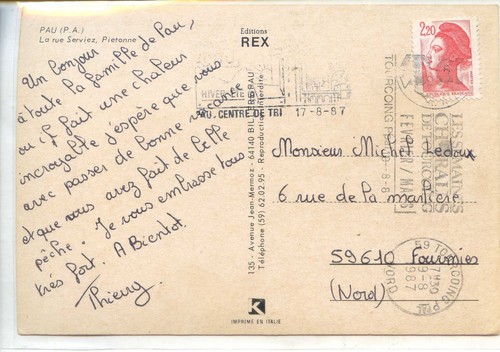 PAU (P.A.)
La rue Serviez, Pietonne
Un bonjour
à toute la famille de Pau,
ou il fait une chaleur
incroyable j'espère que vous
avec passer de bonne vacance
et que vous avez fait de belle
pêche. Je vous embrasse tous
très fort. A Bientot.
Thierry
Editions
REX
135 - Avenue Jean-Mermoz - 64140 BILLERE-PAU
Téléphone (59) 62.02.95 - Reproduction interdite
K
IMPRIMÉ EN ITALIE
HIVER-ETE
PAU, CENTRE DE TRI
17-8-87
2,20
TOURCOING
FEVRIER / MARS
Monsieur Michel Ledoux
6 rue de la marlière
59610 Fourmies
(Nord)
59 TOURCOING PPAL
17H30
19-8
1987
NORD